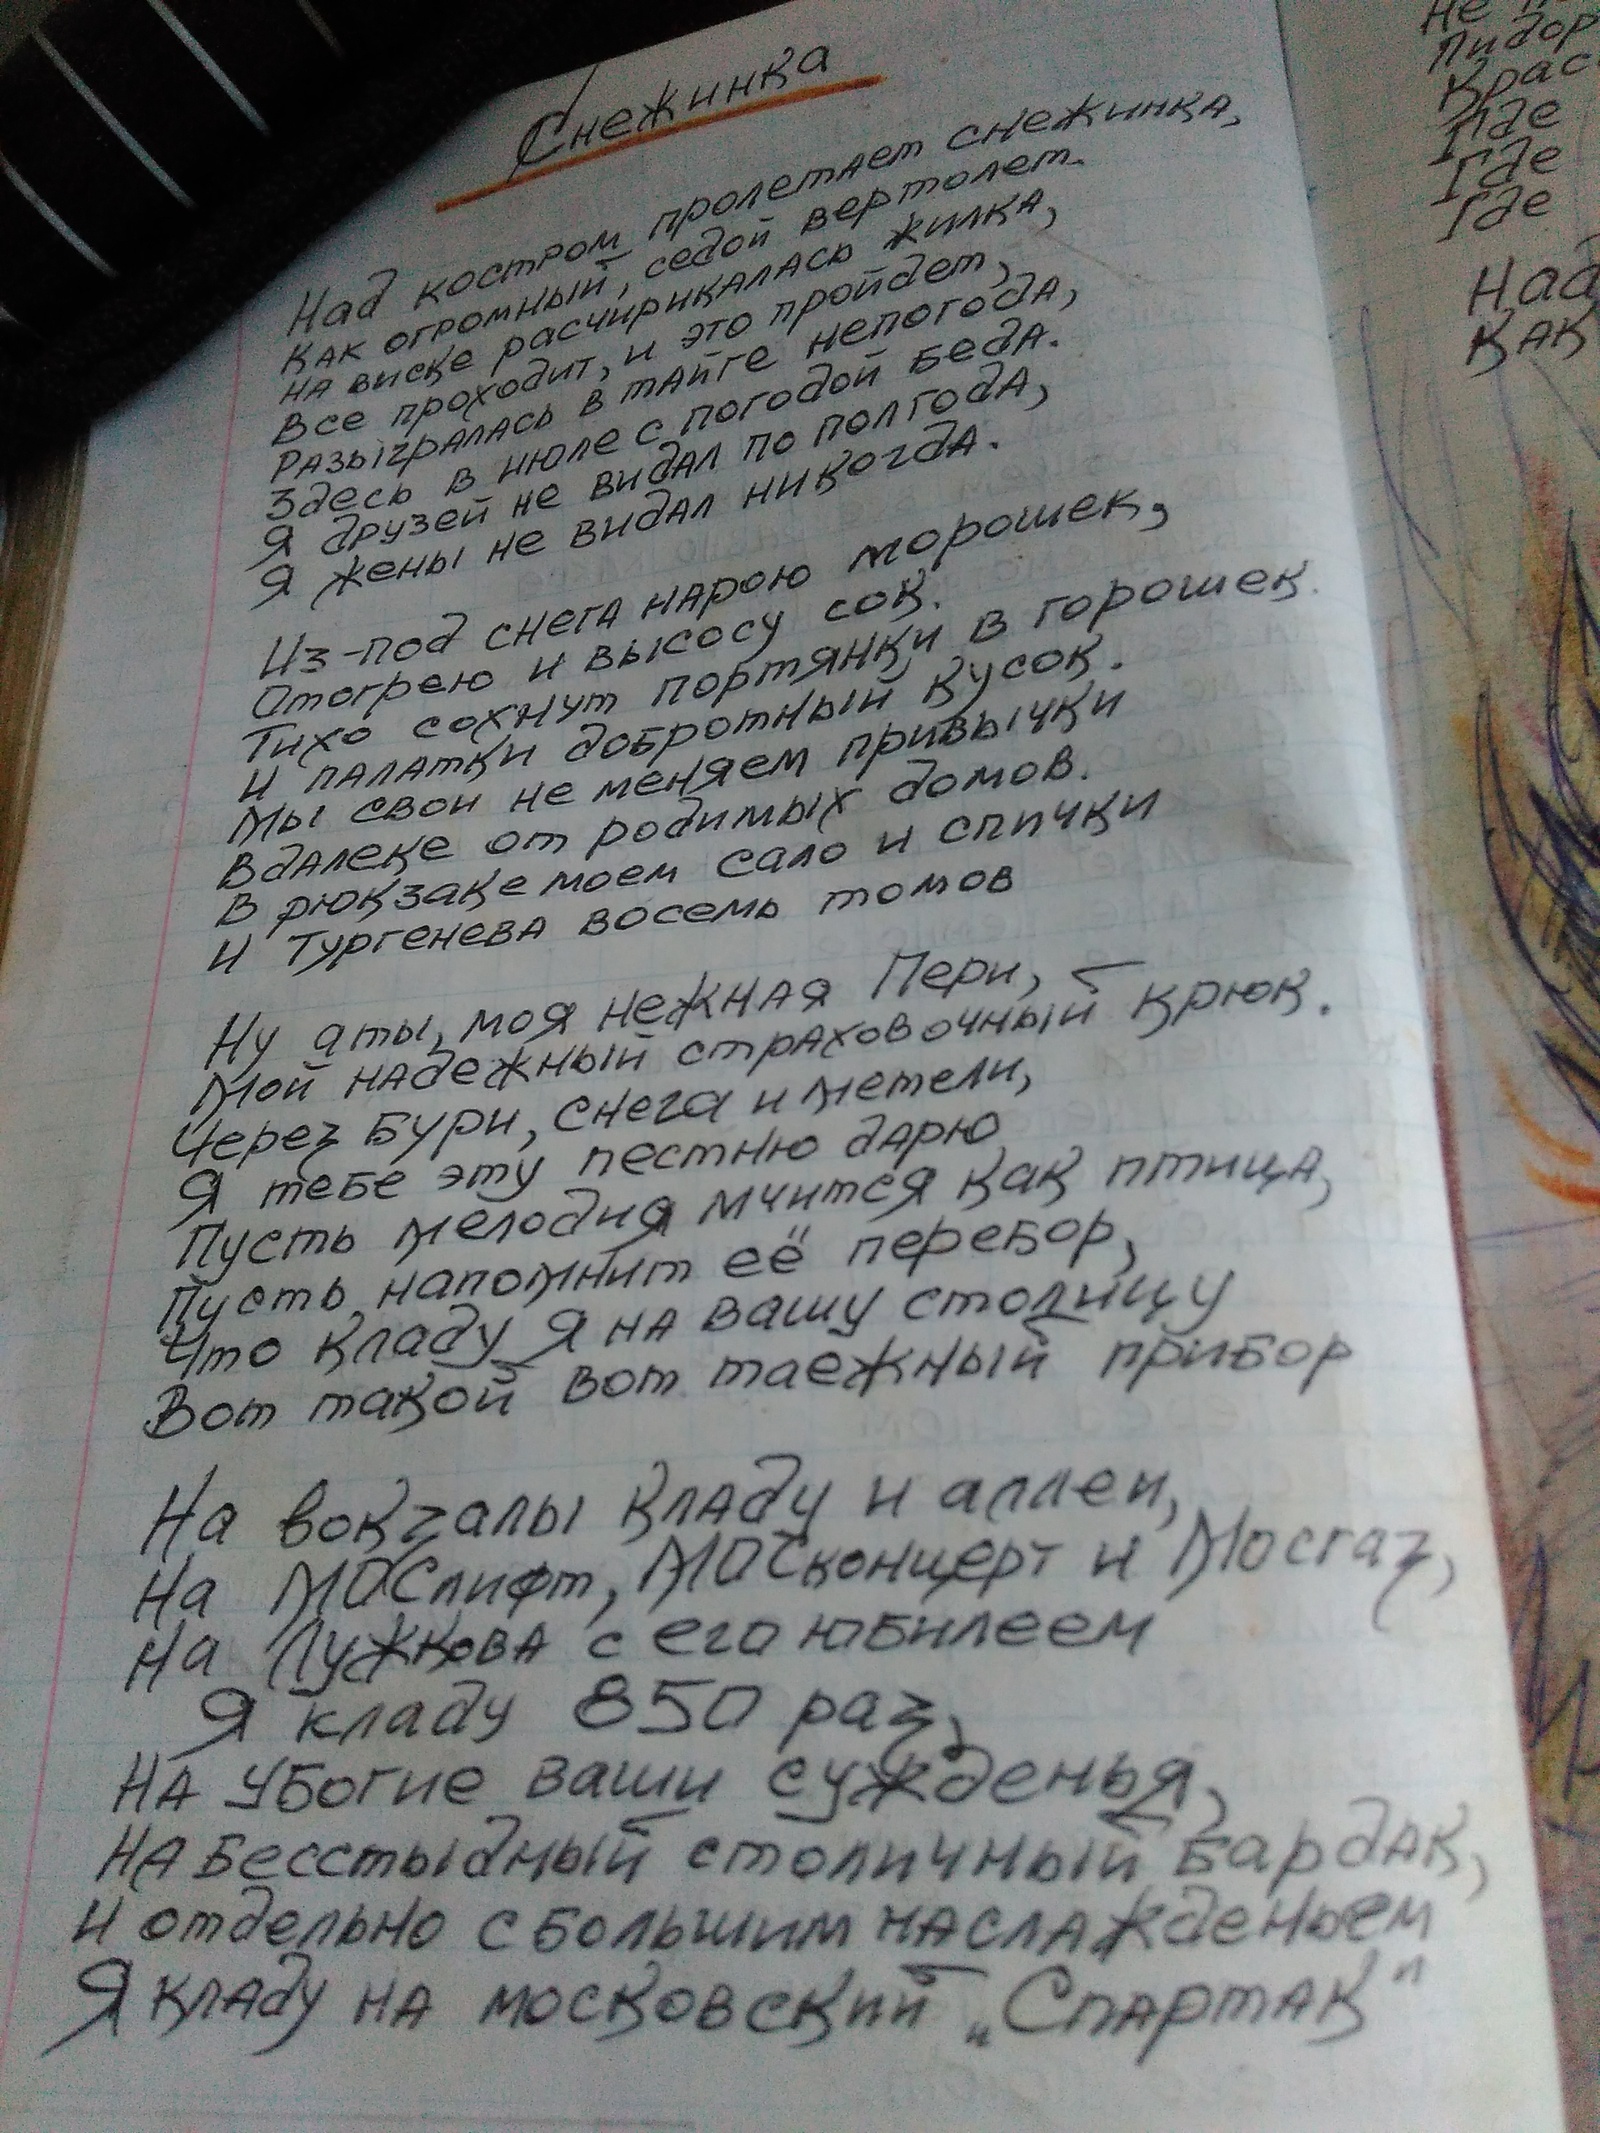 Снежинка
Над костром пролетает снежинка,
Как огромный, седой вертолет.
На виске расчирикалась жилка,
Все проходит, и это пройдет,
Разыгралась в тайге непогода,
Здесь в июле с погодой беда.
Я друзей не видал по полгода,
Я жены не видал никогда.
Из-под снега нарою морошек,
Отогрею и высосу сок.
Тихо сохнут портянки в горошек.
И палатки добротный кусок.
Мы свои не меняем привычки
Вдалеке от родимых домов.
В рюкзаке моем сало и спички
И Тургенева восемь томов
Ну а ты, моя нежная Пери,
Мой надежный страховочный крюк.
Через бури, снега и метели,
Я тебе эту пестню дарю
Пусть мелодия мчится как птица,
Пусть напомнит её перебор,
Что кладу я на вашу столицу
Вот такой вот таежный прибор
На вокзалы кладу и аллеи,
На МОСлифт, МОСконцерт и Мосгаз,
На Лужкова с его юбилеем
Я кладу 850 раз,
На убогие ваши сужденья,
На бесстыдный столичный бардак,
И отдельно с большим наслажденьем
Я кладу на московский „Спартак"
Не
Пидор
Крас
Где
Где
Где
Над
Как